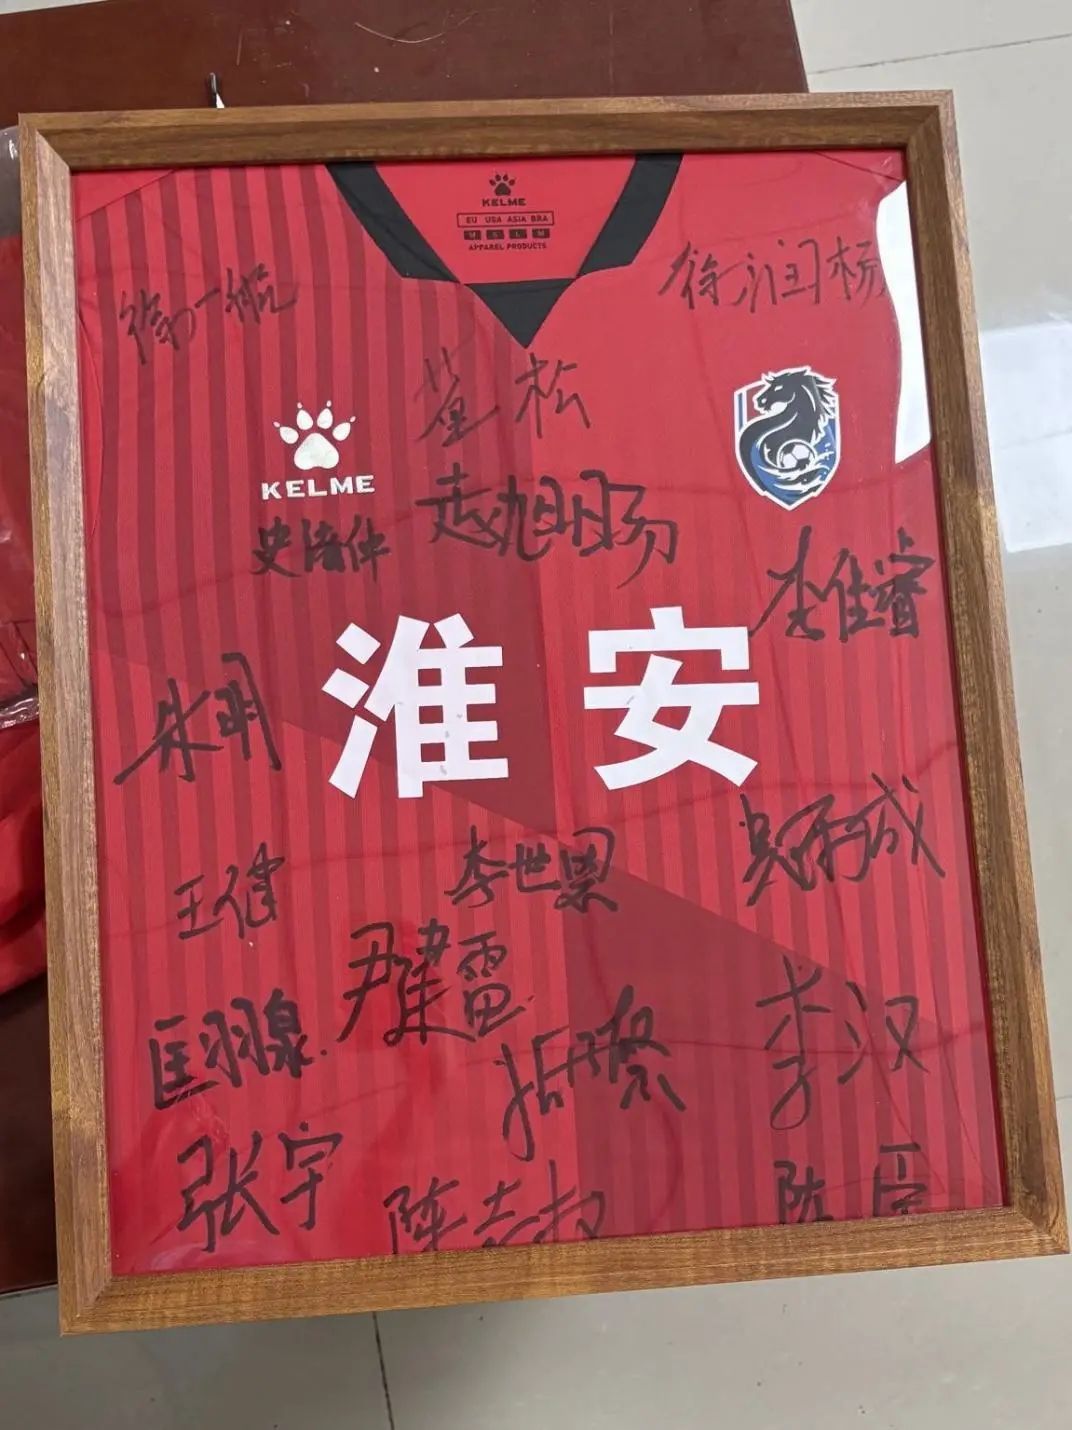 KELME
EU USA ASIA BRA
M S L M
APPAREL PRODUCTS
徐一航
徐润杨
董松
KELME
赵旭阳
史倍仲
李佳睿
淮安
朱明
王健
李世恩
尹建雷
匡羽泉
李汉
张宇
陈志权
陈